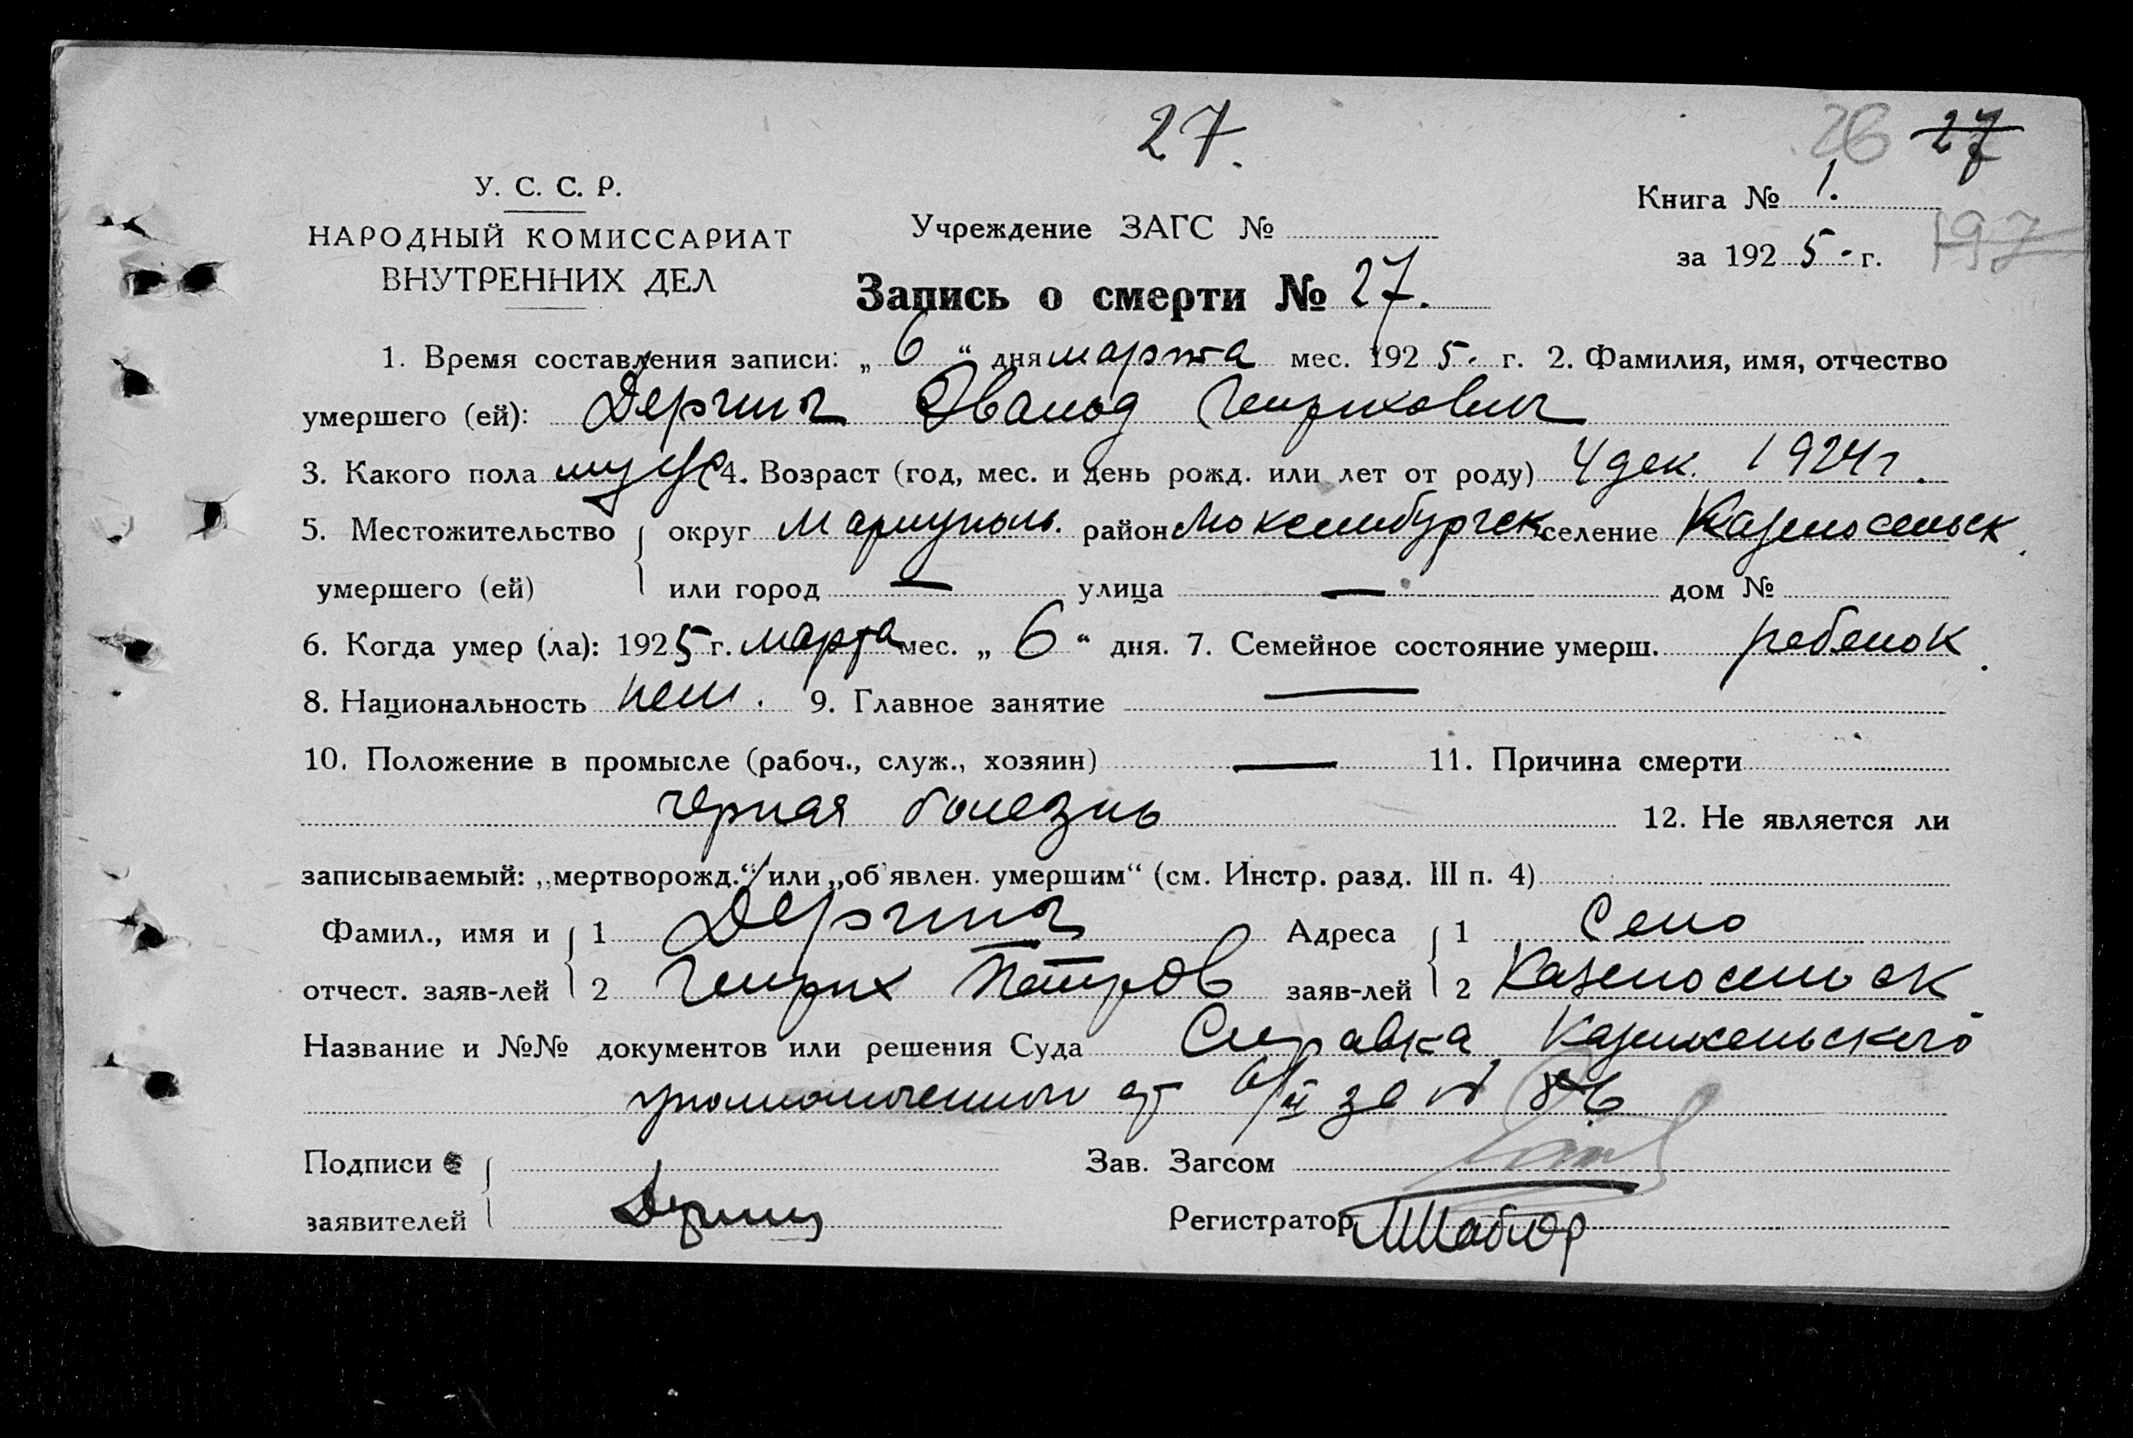 27.
26 27
У. С. С. Р.
НАРОДНЫЙ КОМИССАРИАТ
ВНУТРЕННИХ ДЕЛ
Учреждение ЗАГС №
Книга № 1.
за 1925 г. 197
Запись о смерти № 27.
1. Время составления записи: „6“ дня марта мес. 1925. г. 2. Фамилия, имя, отчество
умершего (ей): Эвальд Генрихович
3. Какого пола муж 4. Возраст (год, мес. и день рожд. или лет от роду) 4 дек. 1924 г.
5. Местожительство округ Мариуполь. район селение Казеносельск.
умершего (ей) или город — улица — дом №
6. Когда умер (ла): 1925 г. марта мес. „6“ дня. 7. Семейное состояние умерш. ребенок.
8. Национальность нем. 9. Главное занятие —
10. Положение в промысле (рабоч., служ., хозяин) — 11. Причина смерти
черная болезнь 12. Не является ли
записываемый: „мертворожд.“ или „об'явлен. умершим“ (см. Инстр. разд. III п. 4)
Фамил., имя и 1 Адреса 1 Село
отчест. заяв-лей 2 Генрих Петров заяв-лей 2 Казеносельск
Название и №№ документов или решения Суда Справка Казеносельского
уполномоченного от 6/III за № 86
Подписи Зав. Загсом
заявителей Регистратор